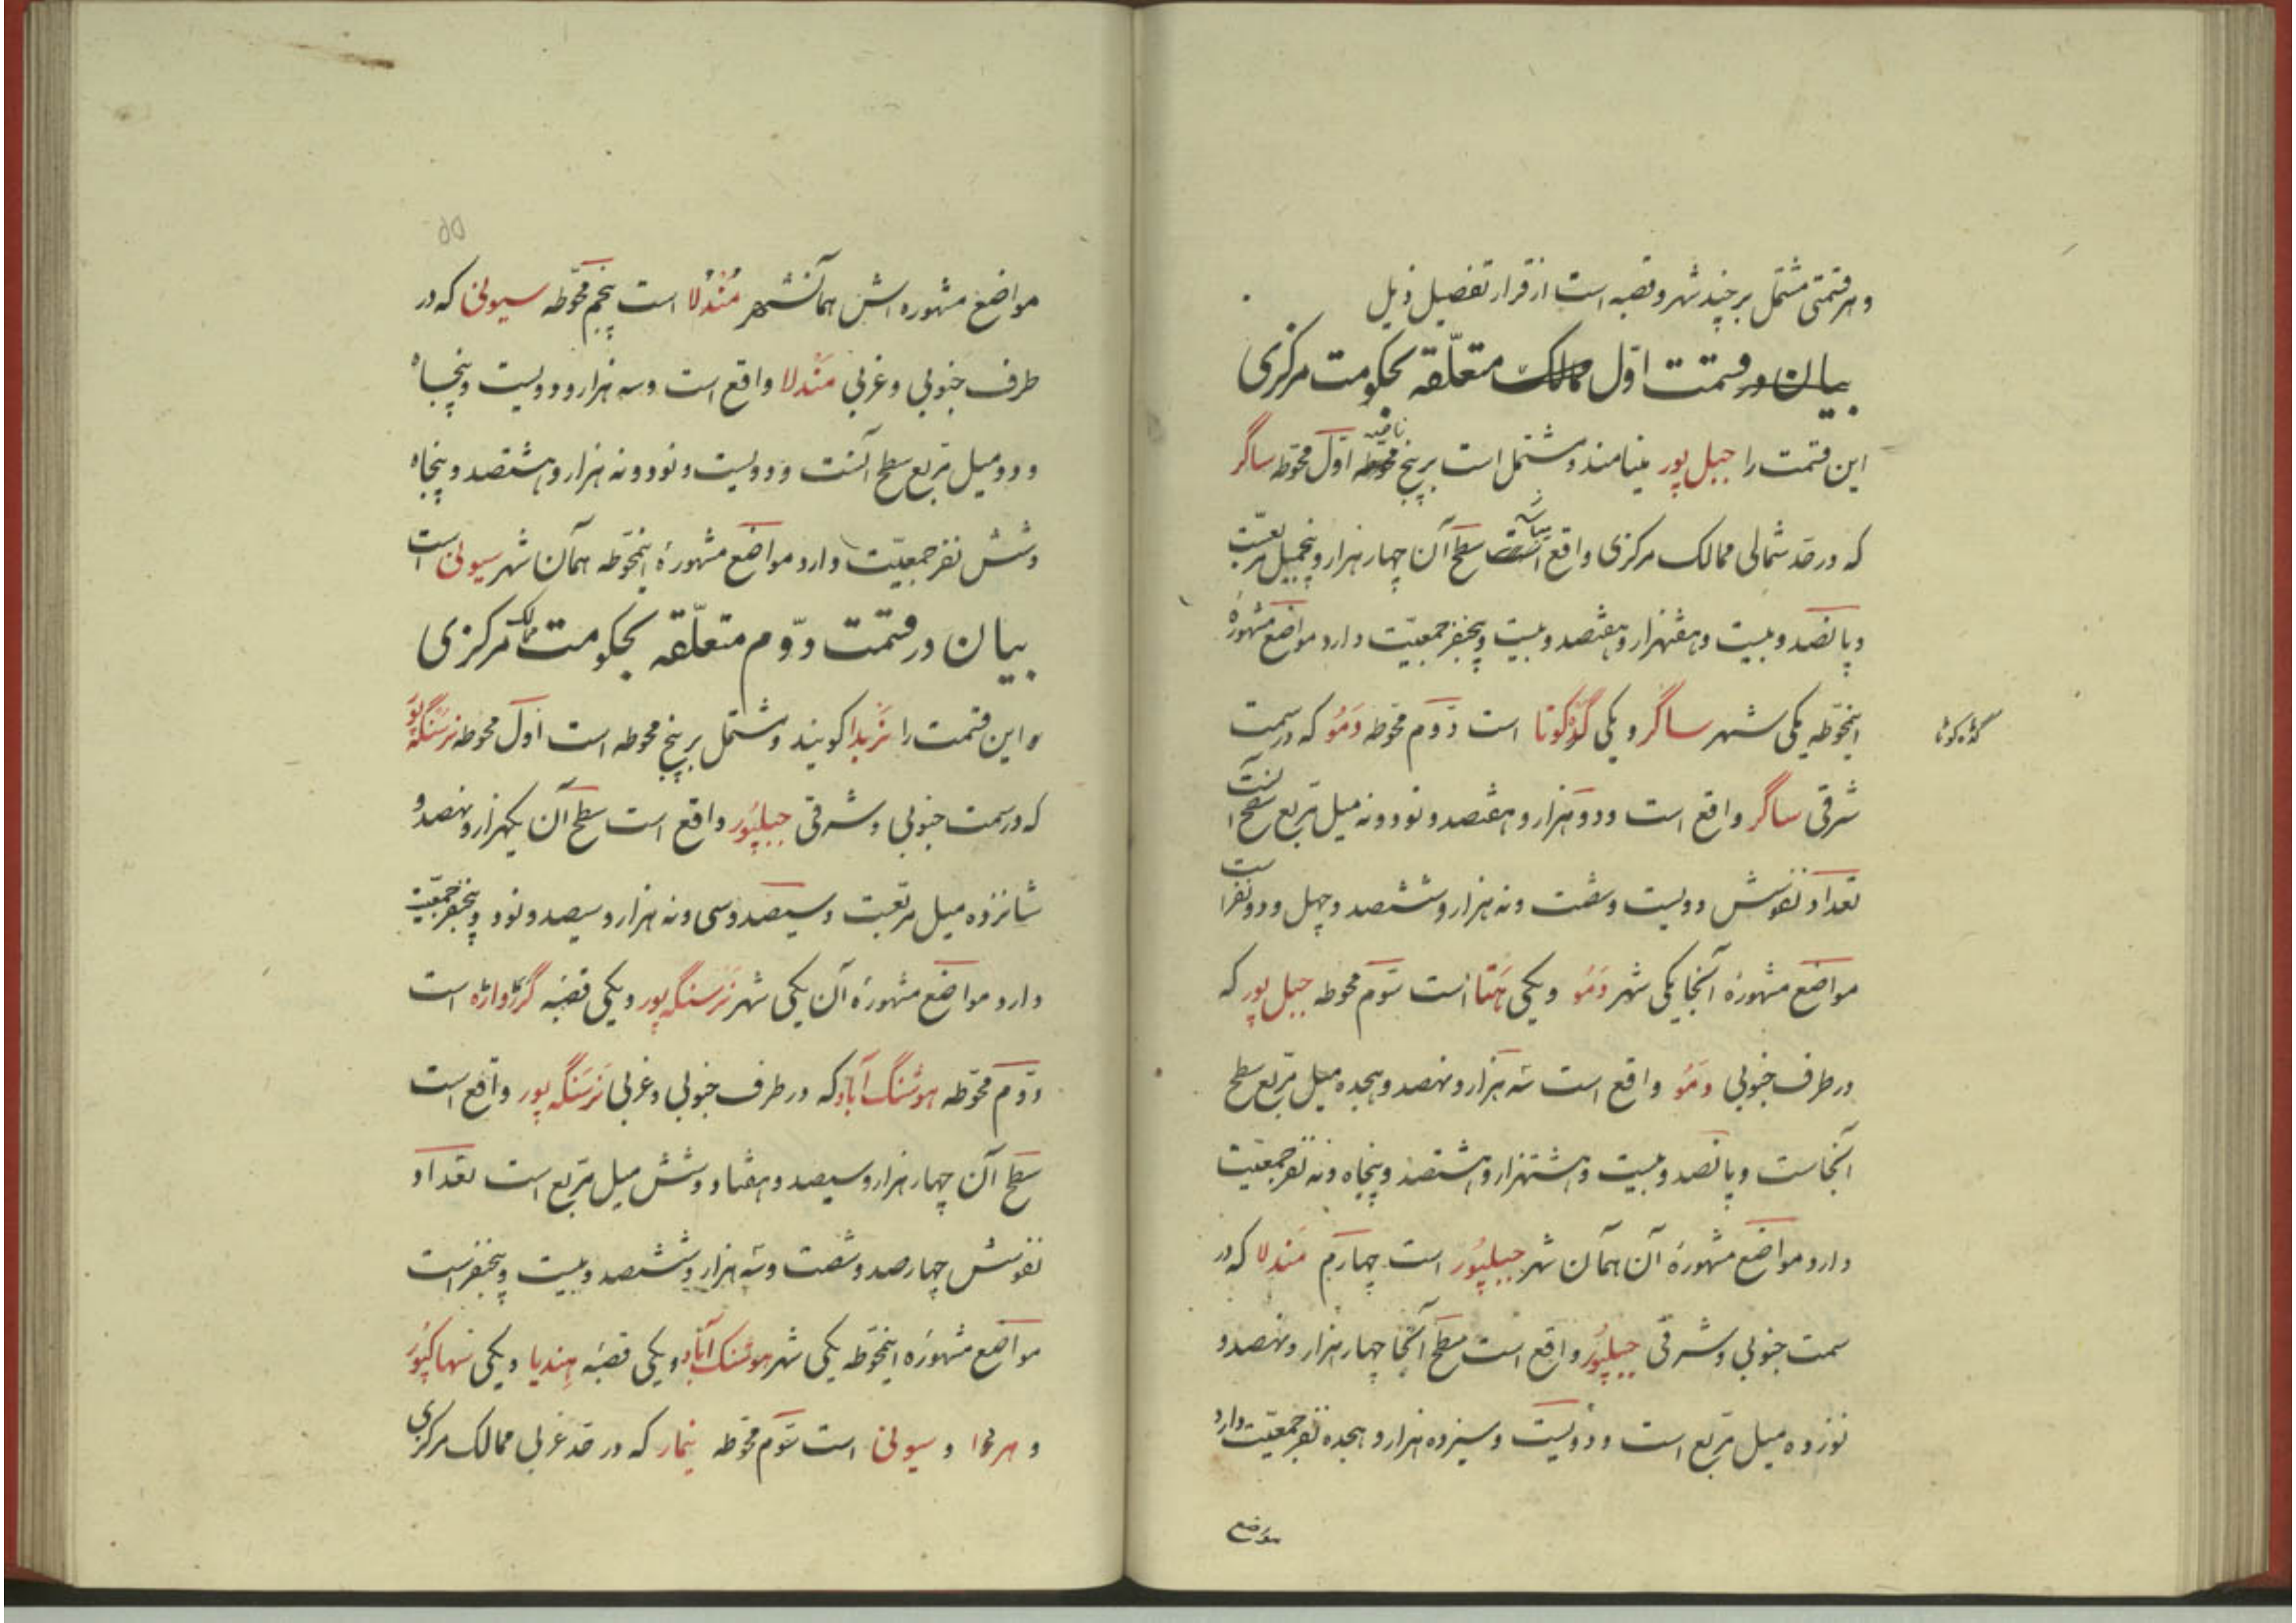 و هر قسمتی مشتمل بر چند شهر و قصبه است از قرار تفصیل ذیل
بیان در قسمت اوّل ممالک متعلّقه بحکومت مرکزی
این قسمت را جبل پور مینامند و مشتمل است بر پنج محوّطه اوّل محوّطه ساگر
که در حد شمالی ممالک مرکزی واقع است سطح آن چهار هزار و پنجمیل مربعست
و پانصد و بیست و هفتهزار و هفتصد و بیست و پنجنفر جمعیّت دارد مواضع مشهورهٔ
اینمحوّطه یکی شهر ساگر و یکی گدّکوتا است دوّم محوّطه دَمُو که در سمت
گده کوتا
شرقی ساگر واقع است و دو هزار و هفتصد و نود و نه میل مربع سطح آنست
تعداد نفوسش دویست و شصت و نه هزار و ششصد و چهل و دو نفر است
مواضع مشهوره آنجا یکی شهر دَمُو و یکی هَتا است سوّم محوطه جبل پور که
در طرف جنوبی دَمُو واقع است سه هزار و نهصد و هیجده میل مربع سطح
آنجاست و پانصد و بیست و هشتهزار و هشتصد و پنجاه و نه نفر جمعیّت
دارد مواضع مشهورهٔ آن همان شهر جبیلپُور است چهارم مَندلا که در
سمت جنوبی و شرقی جبیلپُور واقع است سطح آنجا چهار هزار و نهصد و
نوزده میل مربع است و دویست و سیزده هزار و هیجده نفر جمعیّت دارد
مواضع
مواضع مشهوره اش همانشهر مُندُلا است پنجم محوّطه سیونی که در
طرف جنوبی و غربی مَندلا واقع است و سه هزار و دویست و پنجاه
و دو میل مربع سطح آنست و دویست و نود و نه هزار و هشتصد و پنجاه
و شش نفر جمعیّت دارد مواضع مشهورهٔ اینمحوّطه همان شهر سیونی است
بیان در قسمت دوّم متعلّقه بحکومت ممالک مرکزی
و این قسمت را نَربدا گویند و مشتمل بر پنج محوطه است اوّل محوطه نرسنگه پُور
که در سمت جنوبی و شرقی جبیلپُور واقع است سطح آن یکهزار و نهصد و
شانزده میل مربّعست و سیصد و سی و نه هزار و سیصد و نود و پنجنفر جمعیّت
دارد مواضع مشهورهٔ آن یکی شهر نَرسَنگه پور و یکی قصبه گرّرواره است
دوّم محوّطه هوشنگ آباد که در طرف جنوبی و غربی نَرسَنگه پور واقع است
سطح آن چهار هزار و سیصد و هفتاد و شش میل مربع است تعداد
نفوسش چهارصد و شصت و سه هزار و ششصد و بیست و پنجنفر است
مواضع مشهورهٔ اینمحوّطه یکی شهر هوشنک آباد و یکی قصبهٔ هِندیا و یکی سهاکپُور
و هردوا و سیونی است سوّم محوّطه نیمار که در حد غربی ممالک مرکزی